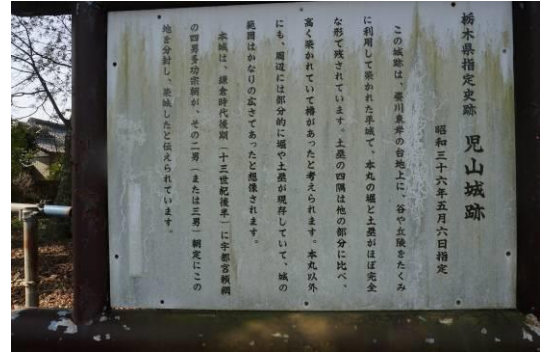 栃木県指定史跡 児山城跡
昭和三十六年五月六日指定
この城跡は、姿川東岸の台地上に、谷や丘陵をたくみ
に利用して築かれた平城で、本丸の堀と土塁がほぼ完全
な形で残されています。土塁の四隅は他の部分に比べ、
高く築かれていて櫓があったと考えられます。本丸以外
にも、周辺には部分的に堀や土塁が現存していて、城の
範囲はかなりの広さであったと想像されます。
本城は、鎌倉時代後期（十三世紀後半）に宇都宮頼綱
の四男多功宗朝が、その二男（または三男）朝定にこの
地を分封し、築城したと伝えられています。